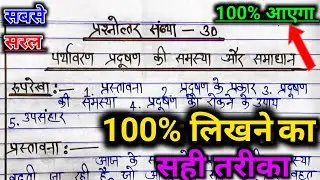 सबसे
सरल
100% आएगा
प्रश्नोत्तर संख्या - 30
पर्यावरण प्रदूषण की समस्या और समाधान
रूपरेखा:- 1. प्रस्तावना 2. प्रदूषण के प्रकार 3. प्रदूषण
की समस्या 4. प्रदूषण को रोकने के उपाय
5. उपसंहार
100% लिखने का
प्रस्तावना:-
सही तरीका
आज के